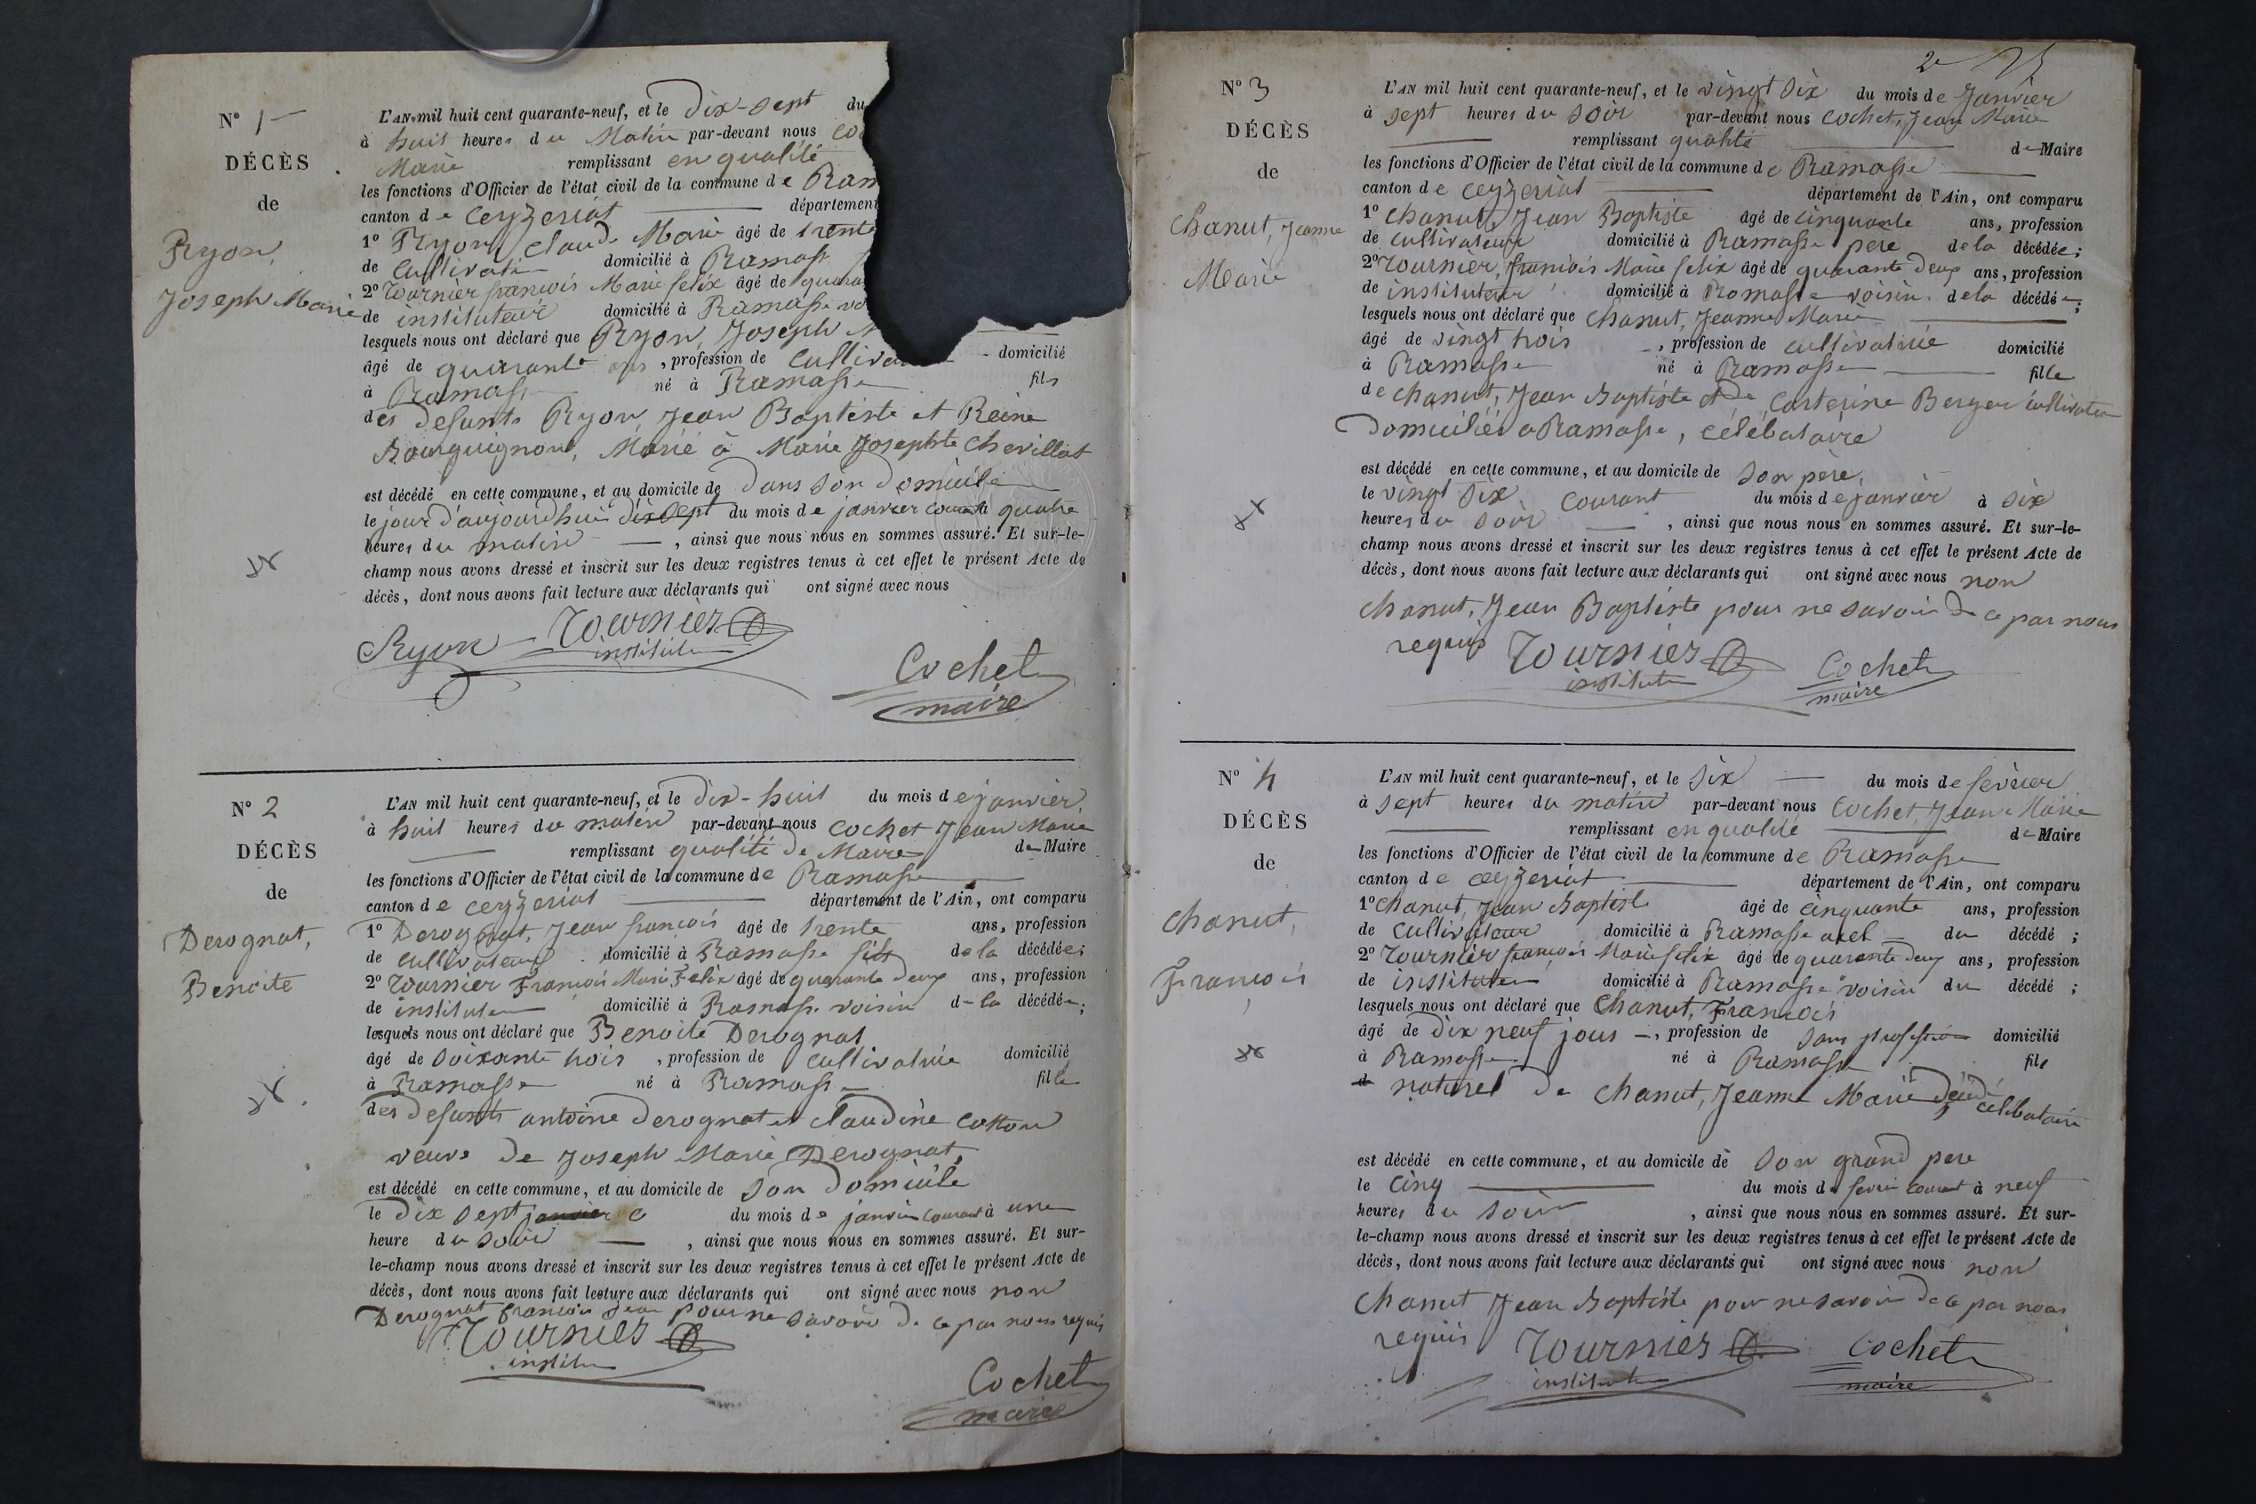 N° 1
DÉCÈS
de
Ryon,
Joseph Marie
L'AN mil huit cent quarante-neuf, et le dix-sept du
à huit heures du Matin par-devant nous
Marie remplissant en qualité
les fonctions d'Officier de l'état civil de la commune de Ram
canton de Ceyzeriat département
1° Ryon, Claude Marie âgé de trente
de Cultivateur domicilié à Ramasse
2° Tournier françois Marie felix âgé de quara
de instituteur domicilié à Ramasse vo
lesquels nous ont déclaré que Ryon, Joseph M
âgé de quarante ans, profession de Cultiva domicilié
à Ramasse né à Ramasse fils
des defunts Ryon, Jean Baptiste et Reine
Bourguignon, Marié à Marie Josephte Chevillat
est décédé en cette commune, et au domicile de dans son Domicile
le jour d'aujourdhui dix sept du mois de janvier courant à quatre
heures du matin, ainsi que nous nous en sommes assuré. Et sur-le-
champ nous avons dressé et inscrit sur les deux registres tenus à cet effet le présent Acte de
décès, dont nous avons fait lecture aux déclarants qui ont signé avec nous
Ryon Tournier
institute
Cochet
maire
N° 2
DÉCÈS
de
Derognat,
Benoite
L'AN mil huit cent quarante-neuf, et le dix-huit du mois de janvier
à huit heures du matin par-devant nous Cochet Jean Marie
remplissant qualité de Maire de Maire
les fonctions d'Officier de l'état civil de la commune de Ramasse
canton de Ceyzeriat département de l'Ain, ont comparu
1° Derognat, Jean françois âgé de trente ans, profession
de cultivateur domicilié à Ramasse fils de la décédée;
2° Tournier François Marie Felix âgé de quarante deux ans, profession
de instituteur domicilié à Ramasse voisin de la décédée;
lesquels nous ont déclaré que Benoite Derognat
âgé de soixante trois, profession de cultivatrice domicilié
à Ramasse né à Ramasse fille
des defunts antoine Derognat et Claudine Cotton
veuve de Joseph Marie Derognat,
est décédé en cette commune, et au domicile de son Domicile
le dix sept janvier c du mois de janvier courant à une
heure du soir, ainsi que nous nous en sommes assuré. Et sur-
le-champ nous avons dressé et inscrit sur les deux registres tenus à cet effet le présent Acte de
décès, dont nous avons fait lecture aux déclarants qui ont signé avec nous non
Derognat françois Jean pour ne savoir de ce par nous requis
Tournier
institu
Cochet
maire
2e
N° 3
DÉCÈS
de
Chanut, Jeanne
Marie
L'AN mil huit cent quarante-neuf, et le vingt six du mois de Janvier
à sept heures du soir par-devant nous Cochet, Jean Marie
remplissant qualité de Maire
les fonctions d'Officier de l'état civil de la commune de Ramasse
canton de Ceyzeriat département de l'Ain, ont comparu
1° Chanut, Jean Baptiste âgé de cinquante ans, profession
de cultivateur domicilié à Ramasse pere de la décédée;
2° Tournier, françois Marie felix âgé de quarante deux ans, profession
de instituteur domicilié à Ramasse voisin de la décédée;
lesquels nous ont déclaré que Chanut, Jeanne Marie
âgé de vingt trois, profession de cultivatrice domicilié
à Ramasse né à Ramasse fille
de Chanut, Jean Baptiste et de Carterine Berger cultivateur
Domiciliés a Ramasse, célébataire
est décédé en cette commune, et au domicile de son père,
le vingt six courant du mois de janvier à six
heures du soir, ainsi que nous nous en sommes assuré. Et sur-le-
champ nous avons dressé et inscrit sur les deux registres tenus à cet effet le présent Acte de
décès, dont nous avons fait lecture aux déclarants qui ont signé avec nous non
Chanut, Jean Baptiste pour ne savoir de ce par nous
requis Tournier Cochet
institute maire
N° 4
DÉCÈS
de
Chanut,
François
L'AN mil huit cent quarante-neuf, et le six du mois de fevrier
à sept heures du matin par-devant nous Cochet, Jean Marie
remplissant en qualité de Maire
les fonctions d'Officier de l'état civil de la commune de Ramasse
canton de Ceyzeriat département de l'Ain, ont comparu
1° Chanut, Jean Baptiste âgé de cinquante ans, profession
de Cultivateur domicilié à Ramasse du décédé;
2° Tournier françois Marie felix âgé de quarante deux ans, profession
de instituteur domicilié à Ramasse voisin du décédé;
lesquels nous ont déclaré que Chanut, François
âgé de dix neuf jours, profession de sans profession domicilié
à Ramasse né à Ramasse fils
naturel de Chanut, Jeanne Marie célibataire
est décédé en cette commune, et au domicile de son grand pere
le cinq du mois de fevrier courant à neuf
heures du soir, ainsi que nous nous en sommes assuré. Et sur-
le-champ nous avons dressé et inscrit sur les deux registres tenus à cet effet le présent Acte de
décès, dont nous avons fait lecture aux déclarants qui ont signé avec nous non
Chanut Jean Baptiste pour ne savoir de ce par nous
requis Tournier Cochet
institute maire